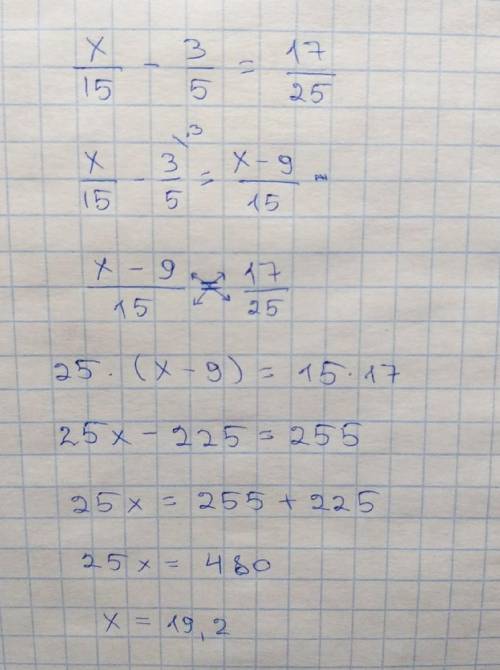 x/15 - 3/5 = 17/25
x/15 - 3/5 \3 = x - 9/15 -
x - 9/15 = 17/25
25 · (x - 9) = 15 · 17
25x - 225 = 255
25x = 255 + 225
25x = 480
x = 19,2